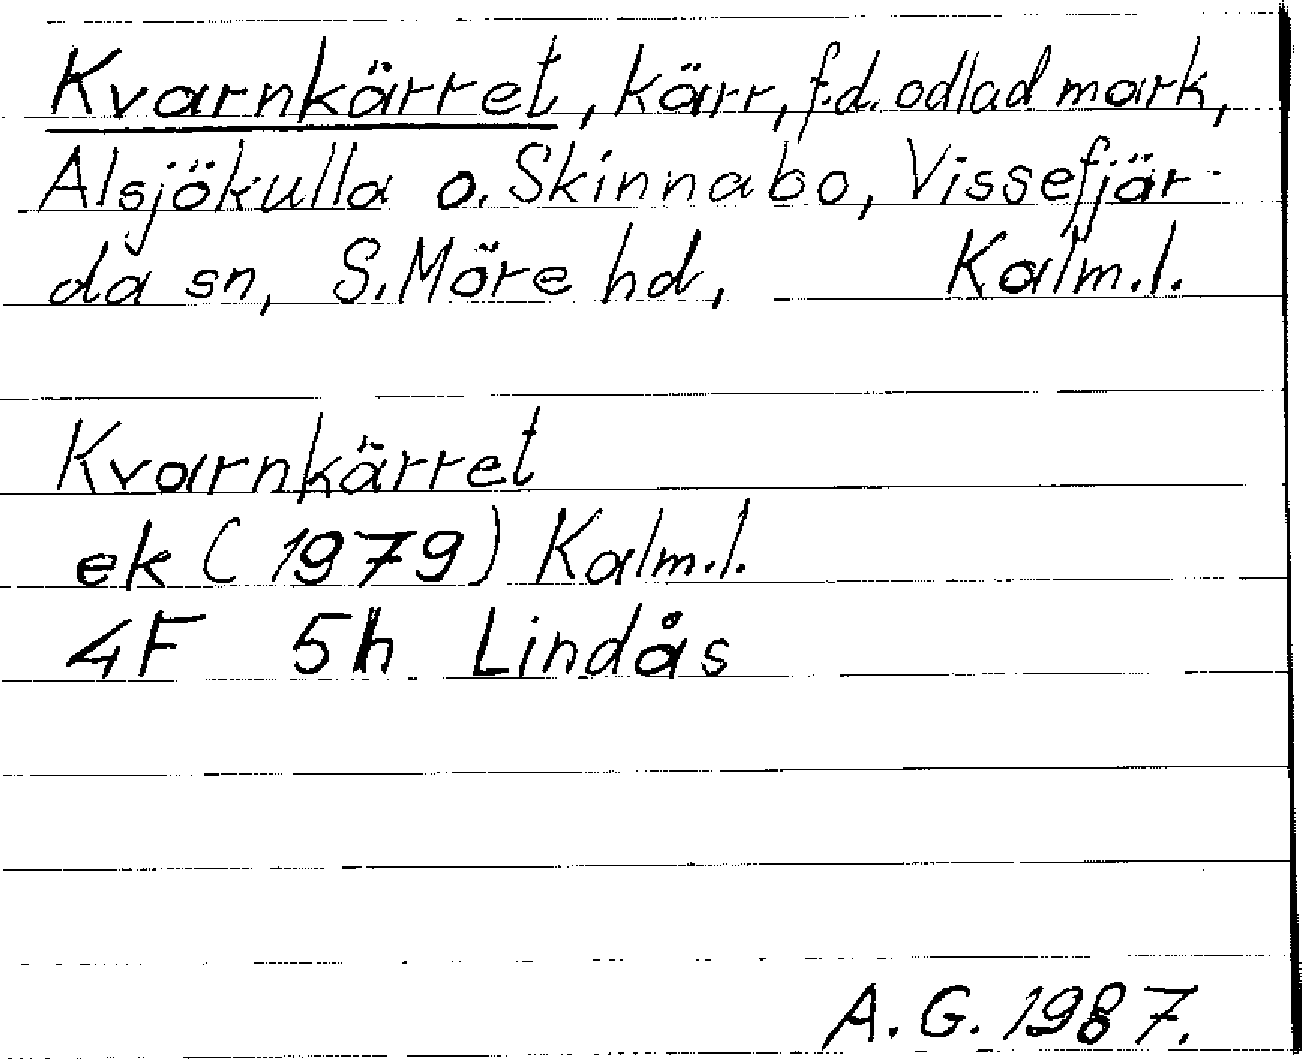 Kvarnkärret, kärr, f.d. odlad mark,
Alsjökulla o. Skinnabo, Vissefjär-
da sn, S. Möre hd, Kalm.l.
Kvarnkärret
ek (1979) Kalm.l.
4F 5h Lindås
A.G. 1987.